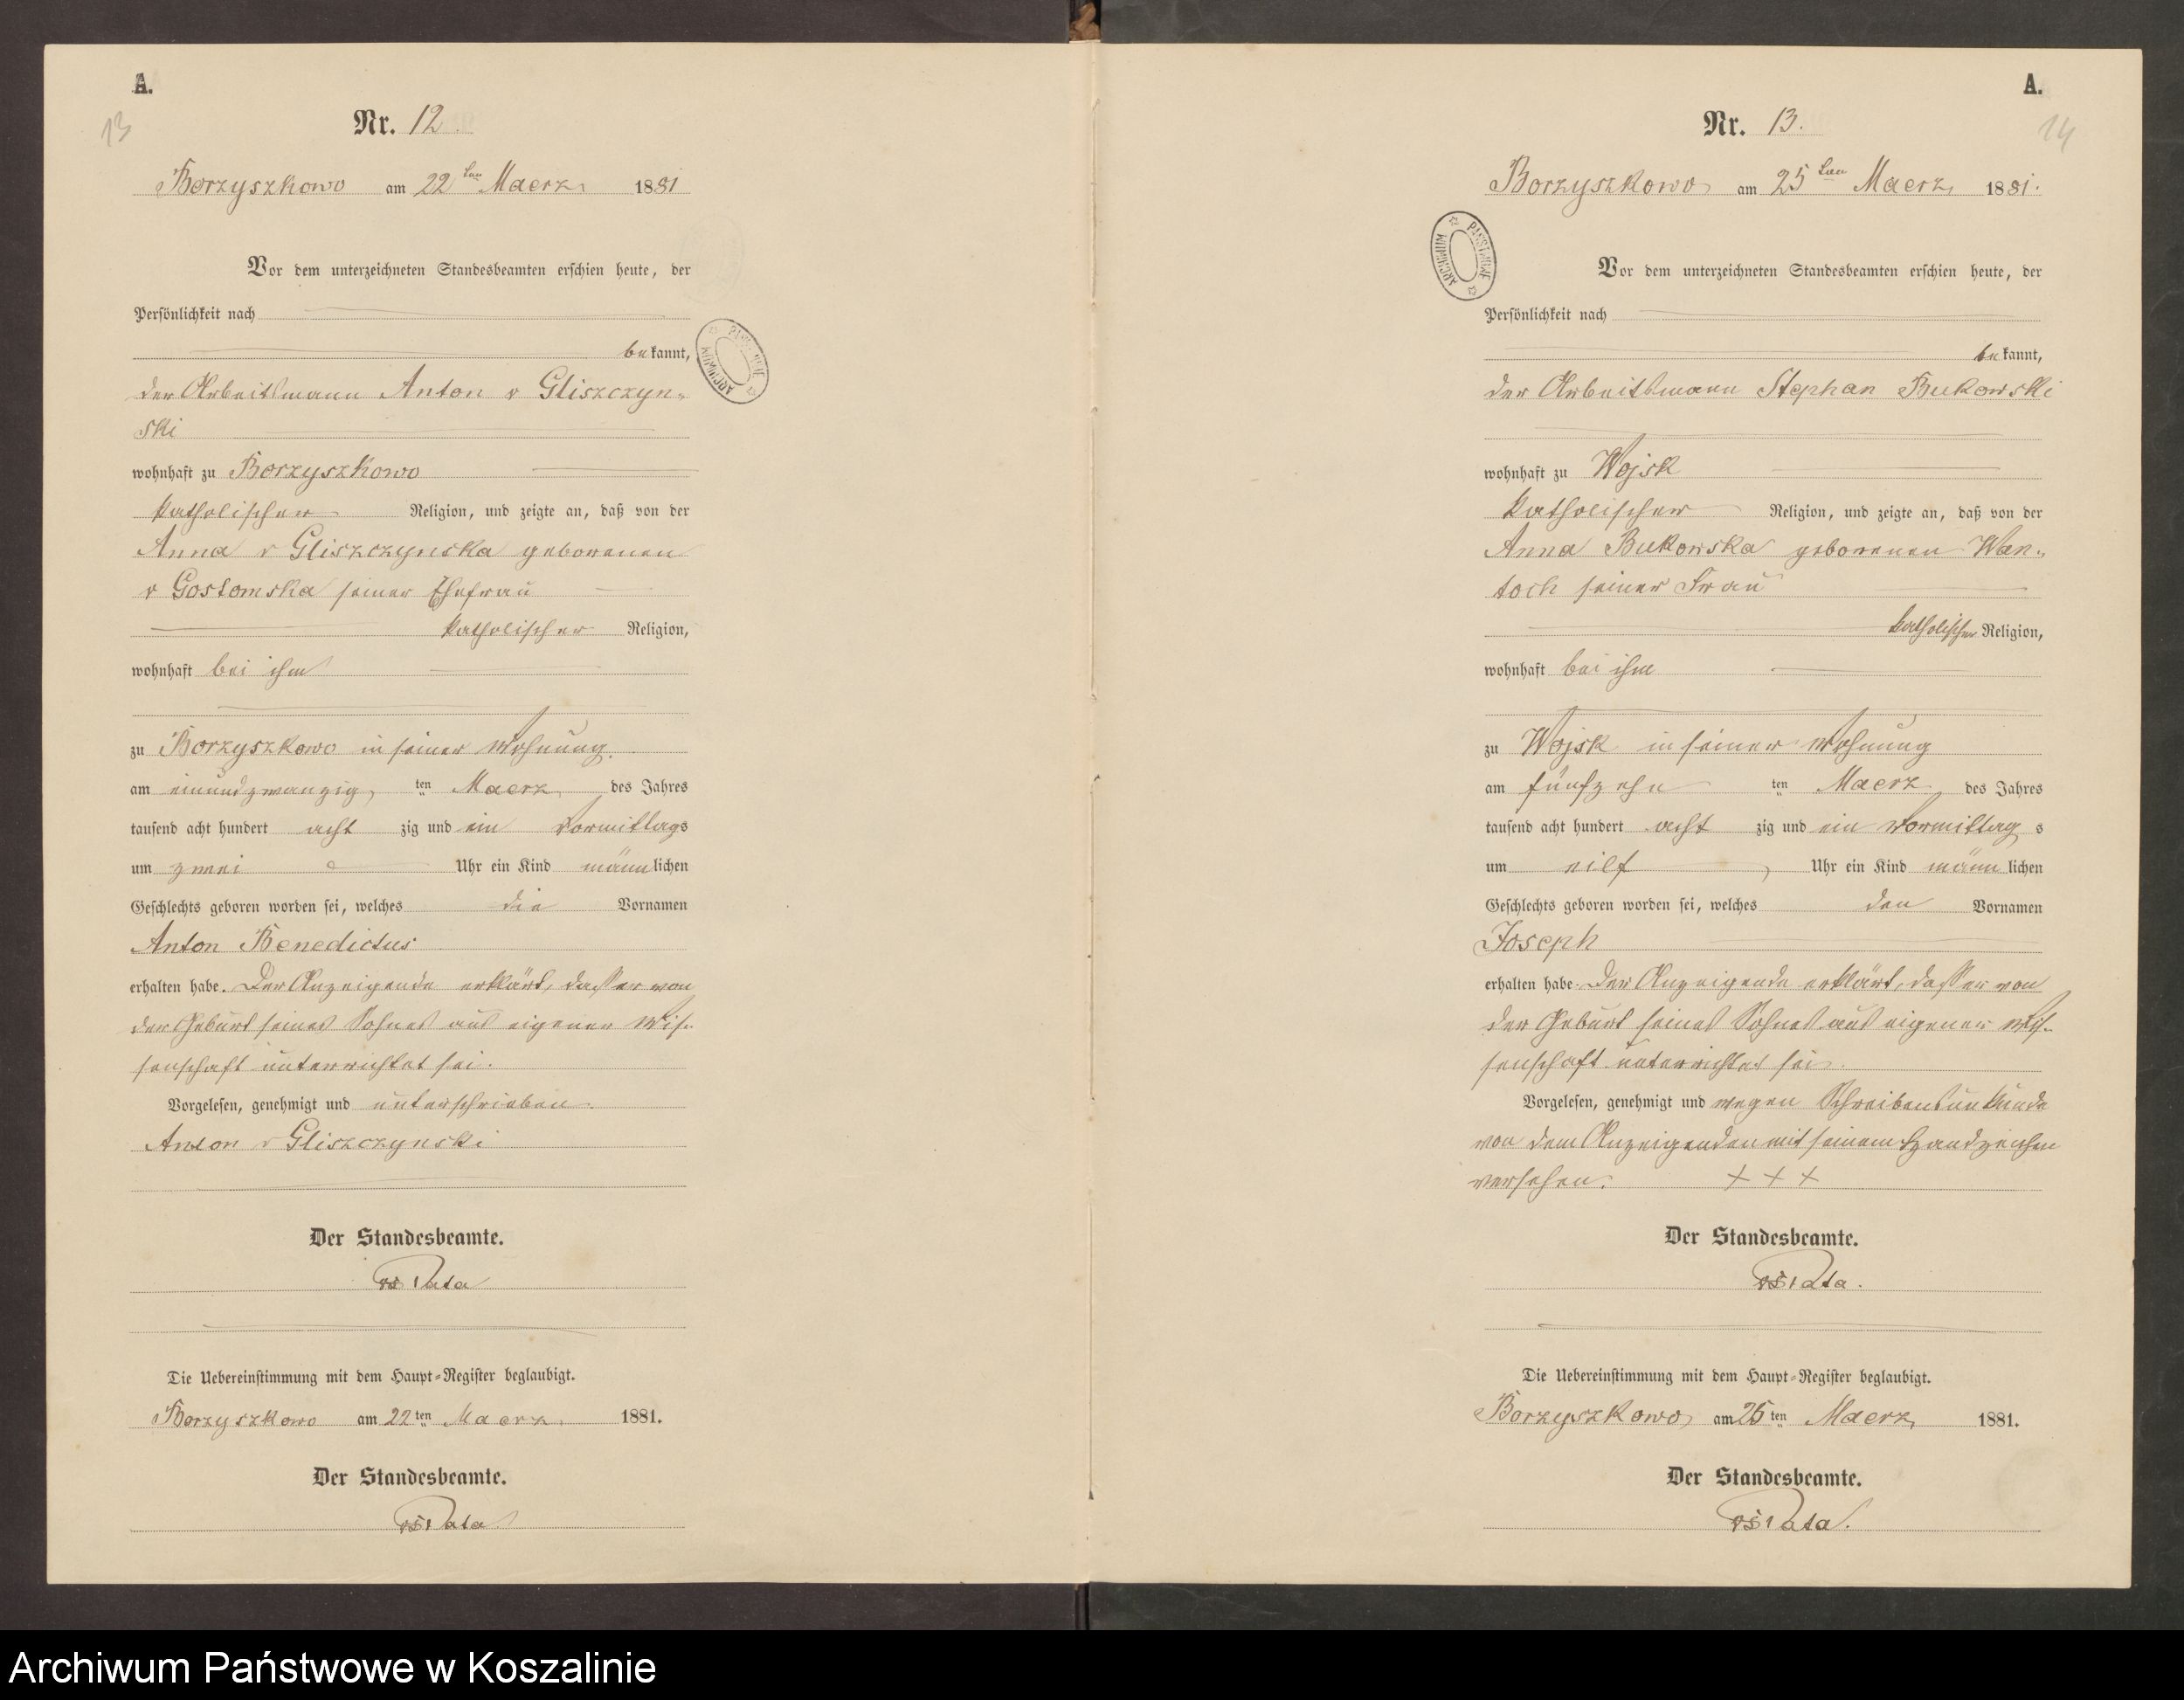 A.
13
Nr. 12.
Borzyszkowo am 22ten Maerz 1881
Vor dem unterzeichneten Standesbeamten erschien heute, der
Persönlichkeit nach
bekannt,
der Arbeitsmann Anton v Gliszczyn-
ski
wohnhaft zu Borzyszkowo
katholischer Religion, und zeigte an, daß von der
Anna v Gliszczynska geborenen
v Gostomska seiner Ehefrau
katholischer Religion,
wohnhaft bei ihm
zu Borzyszkowo in seiner Wohnung.
am einundzwanzig ten Maerz des Jahres
tausend acht hundert acht zig und ein Vormittags
um zwei Uhr ein Kind männlichen
Geschlechts geboren worden sei, welches die Vornamen
Anton Benedictus
erhalten habe. Der Anzeigende erklärt, dass er von
der Geburt seines Sohnes aus eigener Wis-
senschaft unterrichtet sei.
Vorgelesen, genehmigt und unterschrieben.
Anton v Gliszczynski
Der Standesbeamte.
Die Uebereinstimmung mit dem Haupt-Register beglaubigt.
Borzyszkowo am 22ten Maerz 1881.
Der Standesbeamte.
A.
14
Nr. 13.
Borzyszkowo am 25ten Maerz 1881.
ARCHIWUM PAŃSTWOWE
Vor dem unterzeichneten Standesbeamten erschien heute, der
Persönlichkeit nach
bekannt,
der Arbeitsmann Stephan Bukowski
wohnhaft zu Wojsk
katholischer Religion, und zeigte an, daß von der
Anna Bukowska geborenen Wan-
toch seiner Frau
katholischer Religion,
wohnhaft bei ihm
zu Wojsk in seiner Wohnung
am fünfzehn ten Maerz des Jahres
tausend acht hundert acht zig und ein Vormittag s
um eilf Uhr ein Kind männlichen
Geschlechts geboren worden sei, welches den Vornamen
Joseph
erhalten habe. Der Anzeigende erklärt, dass er von
der Geburt seines Sohnes aus eigener Wis-
senschaft unterrichtet sei.
Vorgelesen, genehmigt und wegen Schreibensunkunde
von dem Anzeigenden mit seinem Handzeichen
versehen. + + +
Der Standesbeamte.
Die Uebereinstimmung mit dem Haupt-Register beglaubigt.
Borzyszkowo am 25ten Maerz 1881.
Der Standesbeamte.
Archiwum Państwowe w Koszalinie